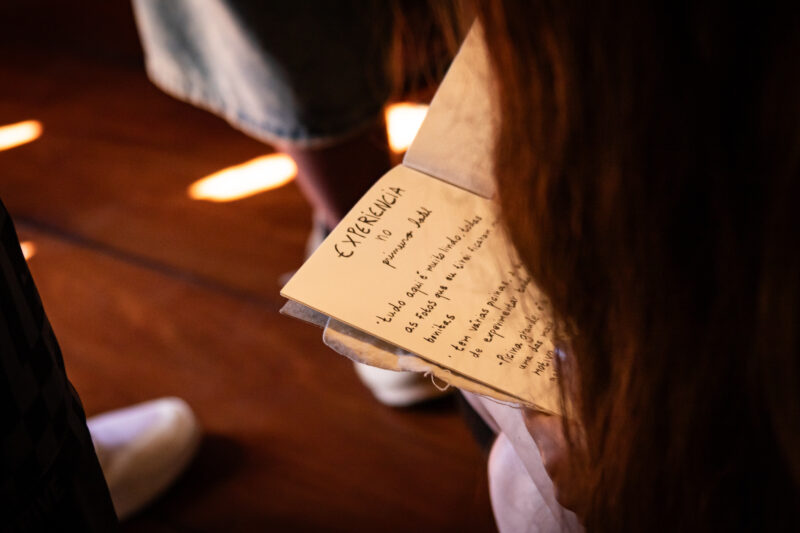 EXPERIENCIA
no
primeiro
• tudo aqui é muito lindo, todas
as fotos que eu tirei ficaram
bonitas
• tem várias
de experimentar
• Piscina grande
uma das
motivo